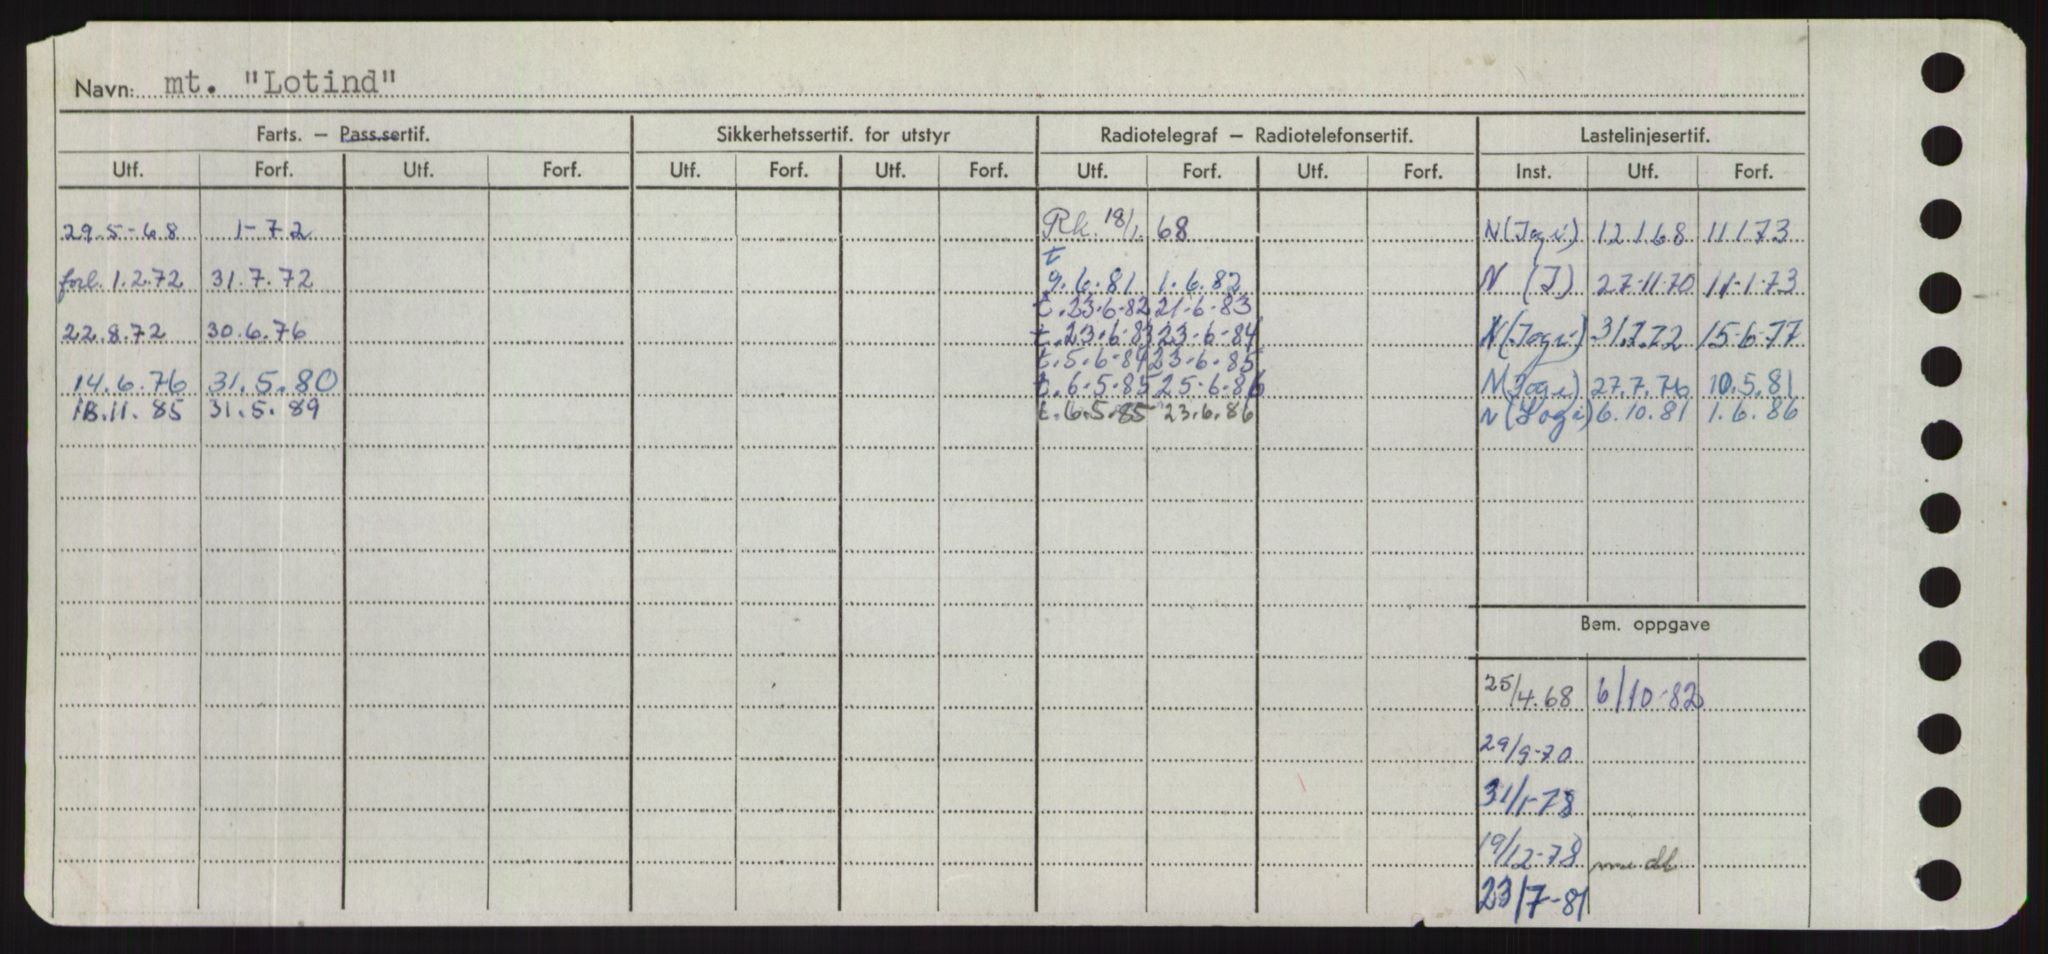 Navn: mt. "Lotind"
Farts. — Pass.sertif. Sikkerhetssertif. for utstyr Radiotelegraf — Radiotelefonsertif. Lastelinjesertif.
Utf. Forf. Utf. Forf. Utf. Forf. Utf. Forf. Utf. Forf. Utf. Forf. Inst. Utf. Forf.
29.5-68 1-72 Rk. 18/1. 68 N (Jogi) 12 1 68 11 1 73
t
forl. 1.2.72 31.7.72 9.6.81 1.6.82 N (J) 27-11-70 11-1-73
t.23-6-82 21-6-83
22.8.72 30.6.76 t.23-6-83 23-6-84 N (Jogi) 31.7.72 15-6-77
t.5-6-84 23-6-85
14.6.76 31.5.80 t.6-5-85 25-6-86 N (Jogi) 27.7.76 10.5.81
18.11.85 31.5.89 t.6.5.85 23.6.86 N (Jogi) 6.10.81 1.6.86
Bem. oppgave
25/4.68 6/10-82
29/9-70
31/1-78
19/12-78
23/7-81